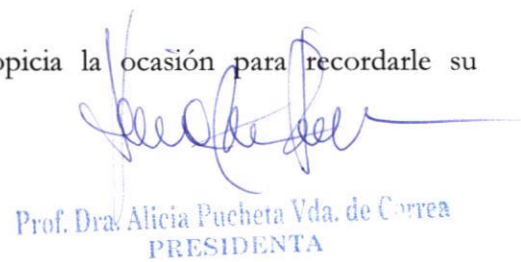 opicia la ocasión para recordarle su
Prof. Dra. Alicia Pucheta Vda. de Correa
PRESIDENTA